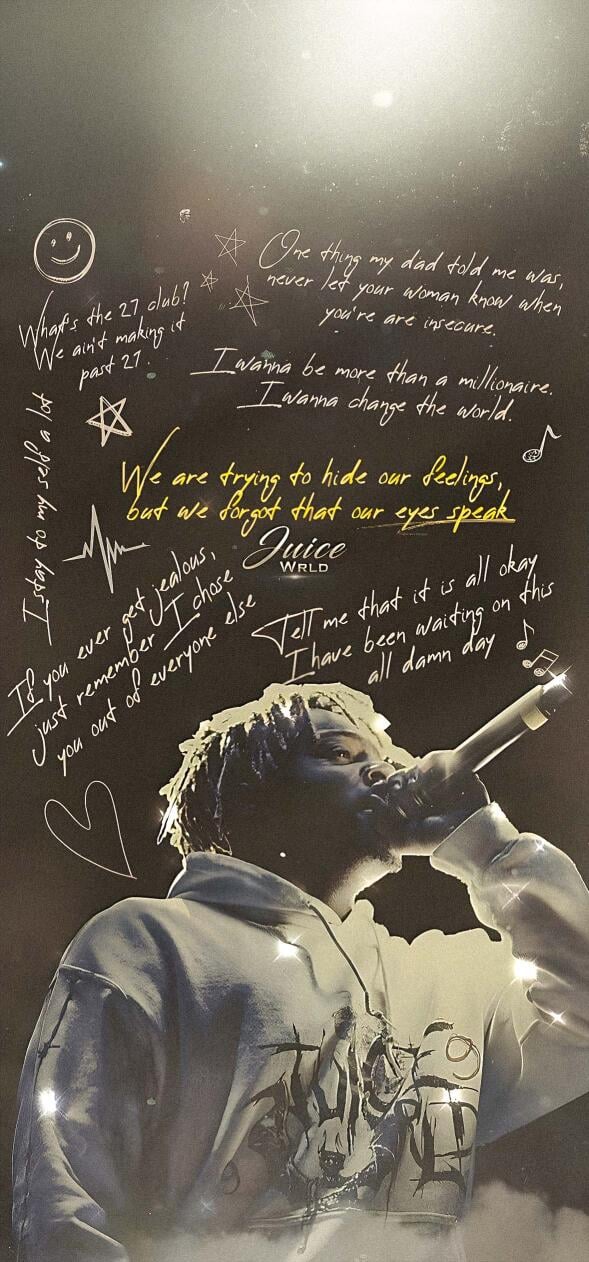 One thing my dad told me was,
never let your woman know when
you're are insecure.
What's the 27 club?
We ain't making it
past 21.
I wanna be more than a millionaire.
I wanna change the world.
I stay to my self a lot
We are trying to hide our feelings,
but we forgot that our eyes speak
Juice
WRLD
If you ever get jealous,
just remember I chose
you out of everyone else
Tell me that it is all okay
I have been waiting on this
all damn day
JUICE
WRLD
9